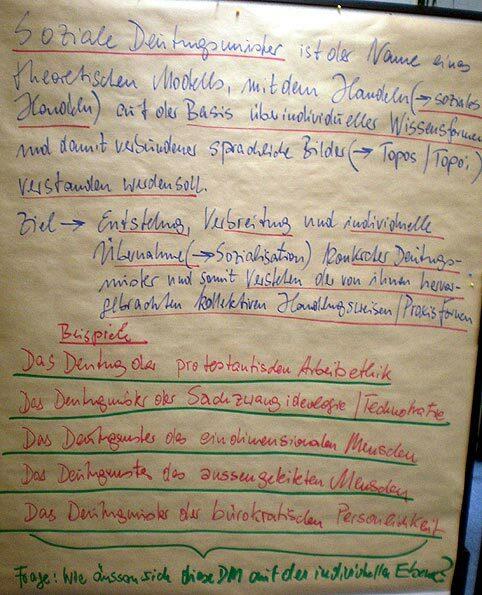 Soziale Deutungsmuster ist der Name eines
theoretischen Modells, mit dem Handeln (→ soziales
Handeln) auf der Basis überindividueller Wissensformen
und damit verbundener sprachliche Bilder (→ Topos / Topoi)
verstanden werden soll.
Ziel → Entstehung, Verbreitung und individuelle
Übernahme (→ Sozialisation) konkreter Deutungs-
muster und somit Verstehen der von ihnen hervor-
gebrachten kollektiven Handlungsweisen / Praxisformen
Beispiele
Das Deutung der protestantischen Arbeitsethik
Das Deutungsmuster der Sachzwangideologie / Technokratie
Das Deutungsmuster des eindimensionalen Menschen
Das Deutungsmuster des aussengeleiteten Menschen
Das Deutungsmuster der bürokratischen Persönlichkeit
Frage: Wie äussern sich diese DM auf der individuellen Ebene?